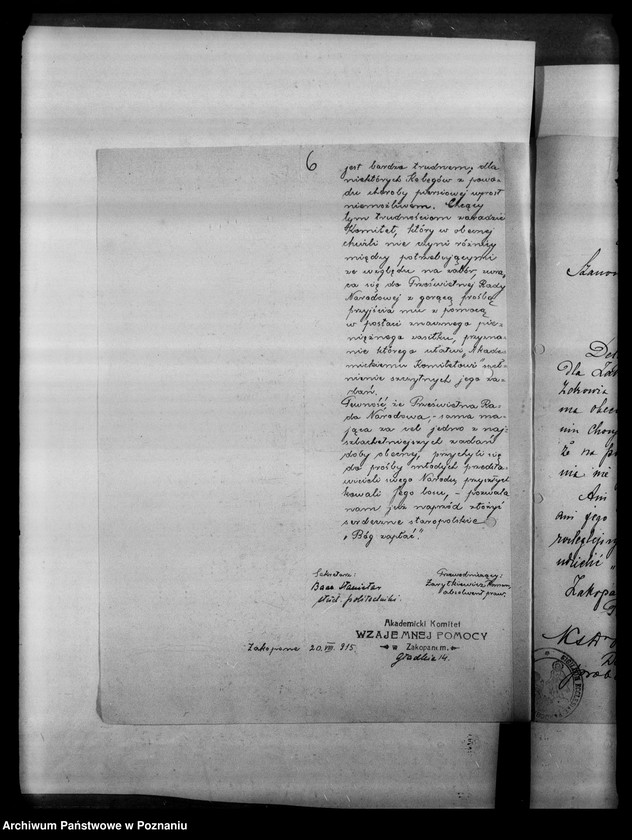 6
jest bardzo trudnem, dla
niektórych Kolegów z powo-
du choroby piersiowej wprost
niemożliwem. Chcący
tym trudnościom zaradzić
Komitet, który w obecnej
chwili nie czyni różnicy
między potrzebującymi
ze względu na zabór, zwra-
ca się do Prześwietnej Rady
Narodowej z gorącą prośbą
przyjścia mu z pomocą
w postaci znacznego pie-
niężnego zasiłku, przyzna-
nie którego ułatwi „Akade-
mickiemu Komitetowi" speł-
nienie szczytnych jego za-
dań.
Pewność, że Prześwietna Ra-
da Narodowa, - sama ma-
jąca za cel jedno z naj-
szlachetniejszych zadań
doby obecnej, przychyli się
do prośby młodych przedsta-
wicieli swego Narodu, przyszłych
kowali Jego losu, - pozwala
nam już naprzód złożyć
serdeczne staropolskie
„Bóg zapłać".
Sekretarz:
Stanisław
stud. politechniki.
Przewodniczący:
Zarytkiewicz Roman,
absolwent praw.
Akademicki Komitet
WZAJEMNEJ POMOCY
w Zakopanem.
Gładkie 14.
Zakopane 20.VIII.915
Szanow
Dla
Zdrowia
ma obecn
nin Chory
że na
nia nie
Ani
ani jego
rozległejsz
udzielić
Zakopa
Archiwum Państwowe w Poznaniu